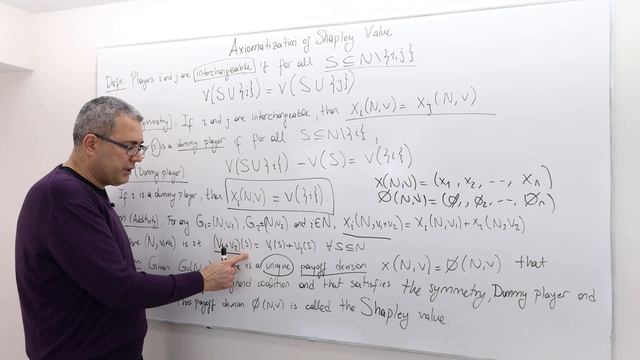 Axiomatization of Shapley Value
Defn: Players i and j are interchangeable if for all S ⊆ N\{i,j}
V(S∪{i}) = V(S∪{j})
mmetry): If i and j are interchangeable, then x_i(N,v) = x_j(N,v)
i is a dummy player if for all S⊆N\{i},
V(S∪{i}) - V(S) = V({i})
(Dummy player)
If i is a dummy player, then x_i(N,v) = V({i}).
x(N,v) = (x_1, x_2, --, x_n)
∅(N,v) = (∅_1, ∅_2, --, ∅_n)
(Additivity) For any G_1=(N,v_1), G_2=(N,v_2) and i∈N, x_i(N,v_1+v_2) = x_i(N,v_1) + x_i(N,v_2)
(N,v_1+v_2) is st (v_1+v_2)(S) = v_1(S)+v_2(S) ∀S⊆N
Given is a unique payoff division x(N,v) = ∅(N,v) that
coalition and that satisfies the symmetry, Dummy player and
This payoff division ∅(N,v) is called the Shapley value.